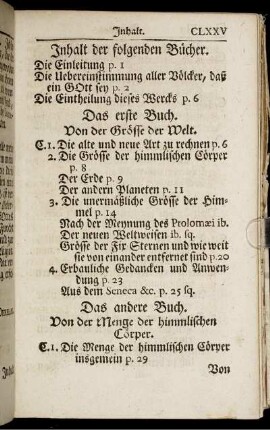 Inhalt. CLXXV
Inhalt der folgenden Bücher.
Die Einleitung p. 1
Die Uebereinstimmung aller Völcker, daß
ein GOtt sey p. 2
Die Eintheilung dieses Wercks p. 6
Das erste Buch.
Von der Grösse der Welt.
C.1. Die alte und neue Art zu rechnen p. 6
2. Die Grösse der himmlischen Cörper
p. 8
Der Erde p. 9
Der andern Planeten p. 11
3. Die unermäßliche Grösse der Him-
mel p. 14
Nach der Meynung des Ptolomæi ib.
Der neuen Weltweisen ib. sq.
Grösse der Fix Sternen und wie weit
sie von einander entfernet sind p.20
4. Erbauliche Gedancken und Anwen-
dung p. 23
Aus dem Seneca &c. p. 25 sq.
Das andere Buch.
Von der Menge der himmlischen
Cörper.
C.1. Die Menge der himmlischen Cörper
insgemein p. 29
Von